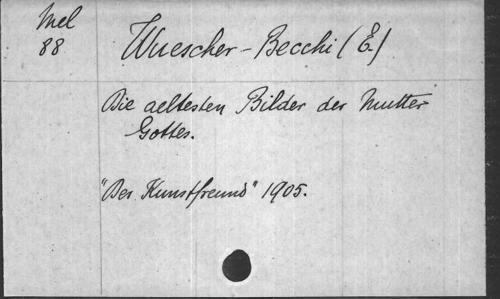 Mel
88
Wuescher-Becchi (E.)
Die aeltesten Bilder der Mutter
Gottes.
"Der Kunstfreund" 1905.